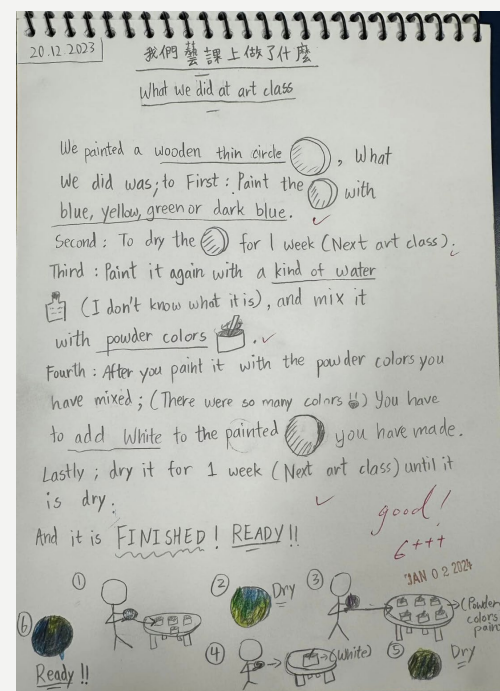 20.12.2023
我們藝課上做了什麼
What we did at art class
We painted a wooden thin circle , What
We did was; to First : Paint the with
blue, yellow, green or dark blue.
Second : To dry the for 1 week (Next art class).
Third : Paint it again with a kind of water
(I don't know what it is), and mix it
with powder colors .
Fourth : After you paint it with the powder colors you
have mixed; (There were so many colors !!) You have
to add White to the painted you have made.
Lastly ; dry it for 1 week (Next art class) until it
is dry.
And it is FINISHED! READY!!
good!
6+++
JAN 02 2024
①
② Dry
③
(Powder colors paint
④ (White)
⑤ Dry
⑥
Ready!!